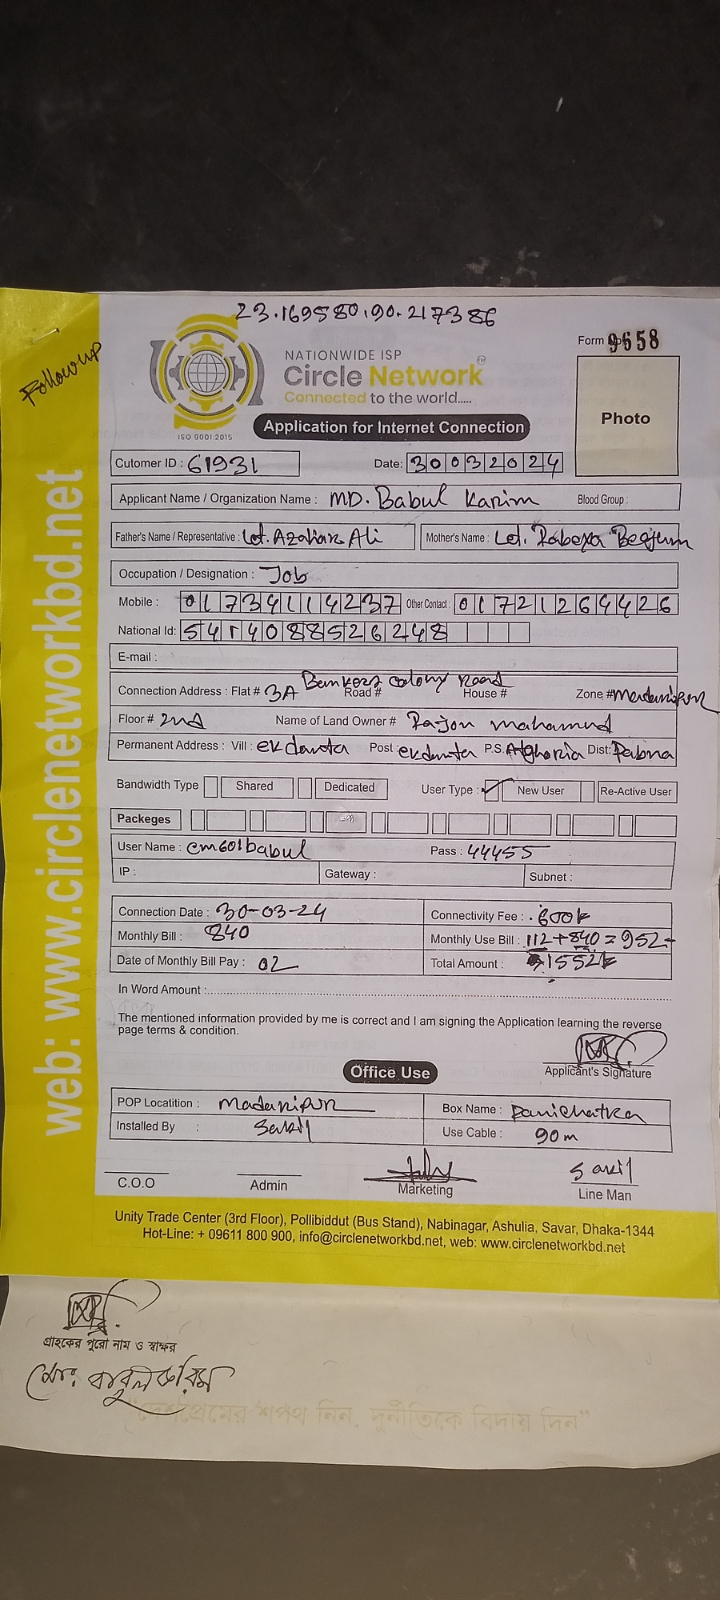 23.169580,90.217386
Follow up
NATIONWIDE ISP
Circle Network
Connected to the world.....
ISO 9001:2015
Form 9658
Photo
Application for Internet Connection
Cutomer ID : 61931 Date: 30032024
Applicant Name / Organization Name : MD. Babul Karim Blood Group :
Father's Name / Representative : Let. Azahar Ali Mother's Name : Let. Rabeya Begum
Occupation / Designation : Job
Mobile : 01734114237 Other Contact : 01721264426
National Id: 5414088526248
E-mail :
Connection Address : Flat # 3A Road # Bankers colony Road House # Zone # Madanipur
Floor # 2nd Name of Land Owner # Rajon mahamud
Permanent Address : Vill : ekdanta Post ekdanta P.S. Atghoria Dist: Pabna
Bandwidth Type Shared Dedicated User Type : New User Re-Active User
Packeges
User Name : cm601babul Pass : 44455
IP : Gateway : Subnet :
Connection Date : 30-03-24 Connectivity Fee : 600
Monthly Bill : 840 Monthly Use Bill : 112+840=952
Date of Monthly Bill Pay : 02 Total Amount : 1552
In Word Amount :
The mentioned information provided by me is correct and I am signing the Application learning the reverse
page terms & condition.
Applicant's Signature
Office Use
POP Locatition : Madanipur Box Name : Panichatka
Installed By : Sakil Use Cable : 90m
C.O.O Admin Marketing Sakil Line Man
Unity Trade Center (3rd Floor), Pollibiddut (Bus Stand), Nabinagar, Ashulia, Savar, Dhaka-1344
Hot-Line: + 09611 800 900, info@circlenetworkbd.net, web: www.circlenetworkbd.net
web: www.circlenetworkbd.net
গ্রাহকের পুরো নাম ও স্বাক্ষর
মোঃ বাবুল করিম
"দেশপ্রেমের শপথ নিন, দুর্নীতিকে বিদায় দিন"